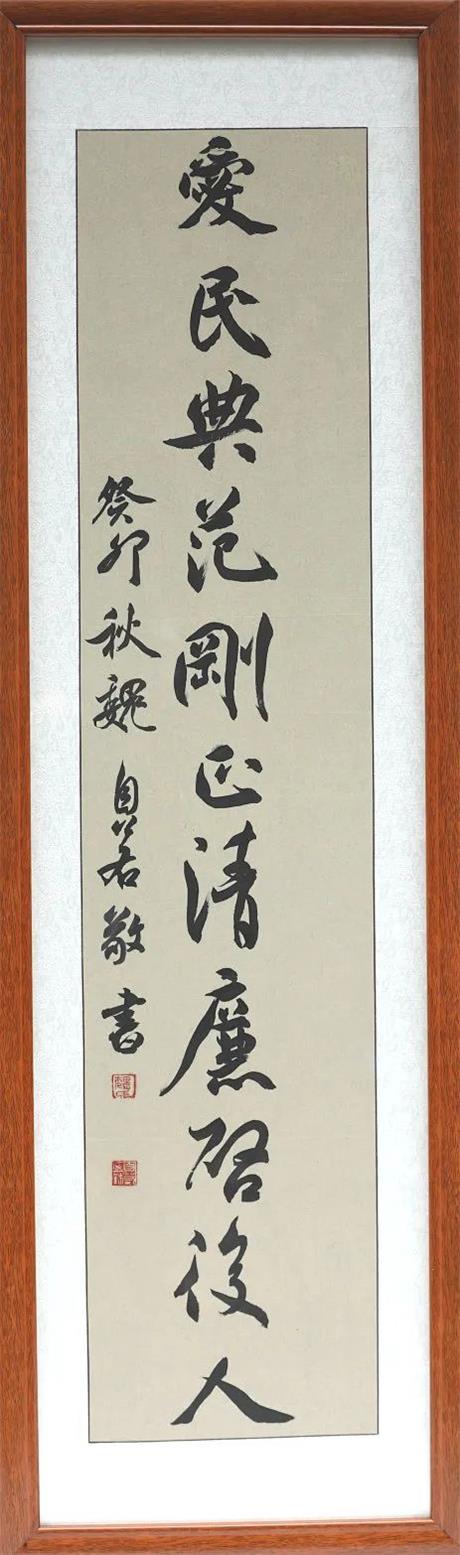 愛民典范剛正清廉啓後人
癸卯秋魏自若敬書